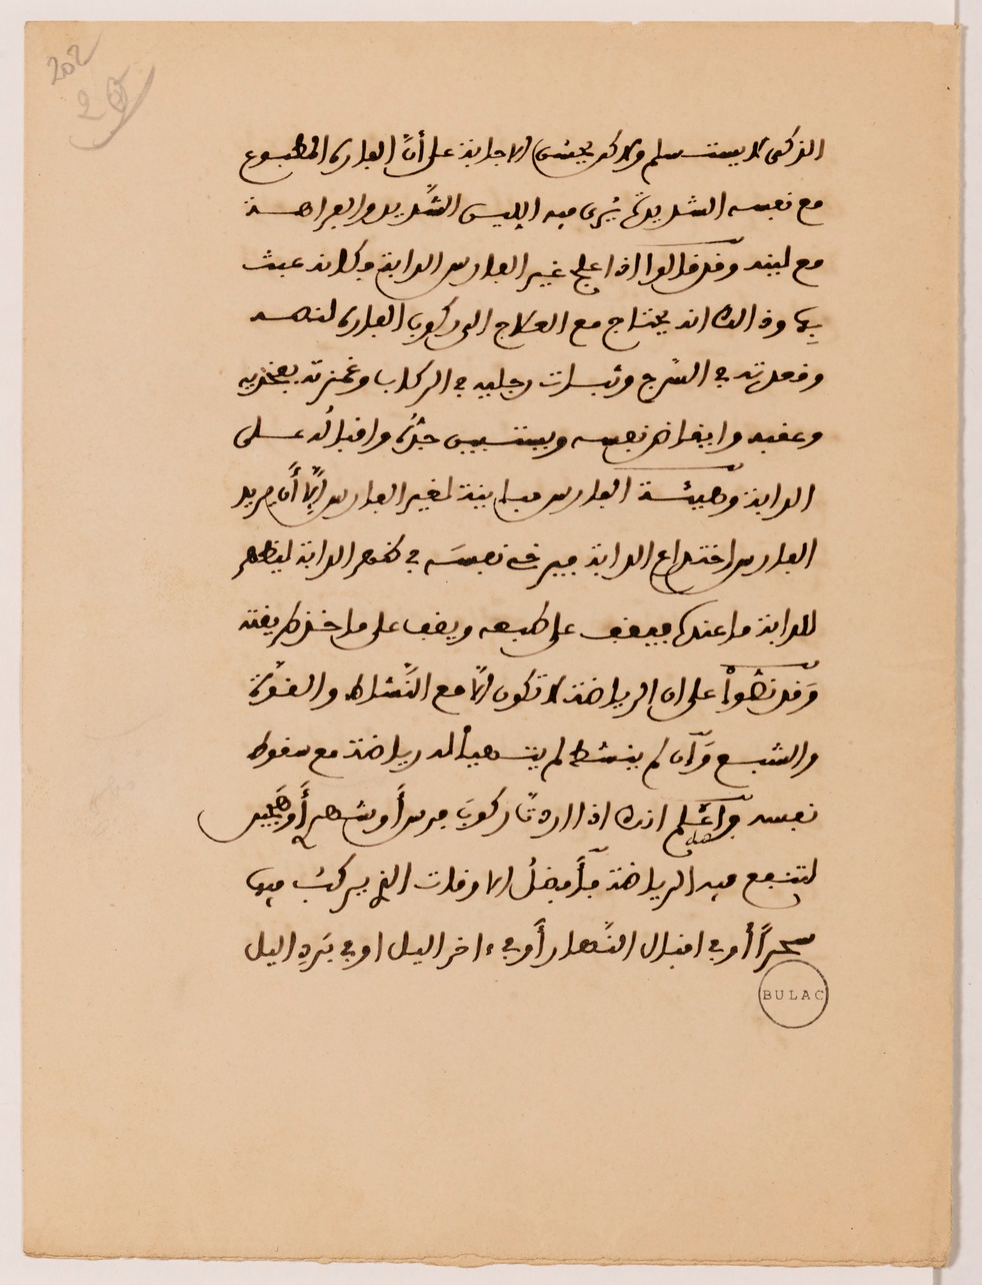 202
20
الذكى لا يستسلم ولاكن يحسن الاجابة على أنّ الفاره المطبوع
مع نفسه الشديدة يُرى فيه الليس الشّديد والفراهة
مع لينه وقد قالوا اذا علج غير الفارس الدابة وكانه عبث
بها وذالك انه يحتاج مع العلاج الى ركوب الفاره لنهسه
وفعدته في السّرج وثبات رجليه في الركاب وغمزته بفخذيه
وعقبه وايقاظه نفسه ويستبين حذقه واقباله على
الدابة وهيئة الفارس مباينة لغير الفارس إلّا أن يريد
الفارس اختداع الدابة فيرخى نفسَه في ظهر الدابة ليظهر
للدابة ما عندها فيقف على طبعه ويقف على ما خذ طريقته
وَقد نصّوا على ان الرياضة لا تكون إلّا مع النّشاط والقوّة
والشبع وَان لم ينشط لم يتهيأ له رياضة مع سقوط
نفسه واعلم انك اذا اردتَ ركوبَ فرس أو شهرىّ أو هجين
لتنفع فيه الرياضة فأفضلُ الاوقات التى يركبُ فيها
سحراً أو في اقبال النّهار أو في ءاخر اليل او في بَردِ اليل
BULAC